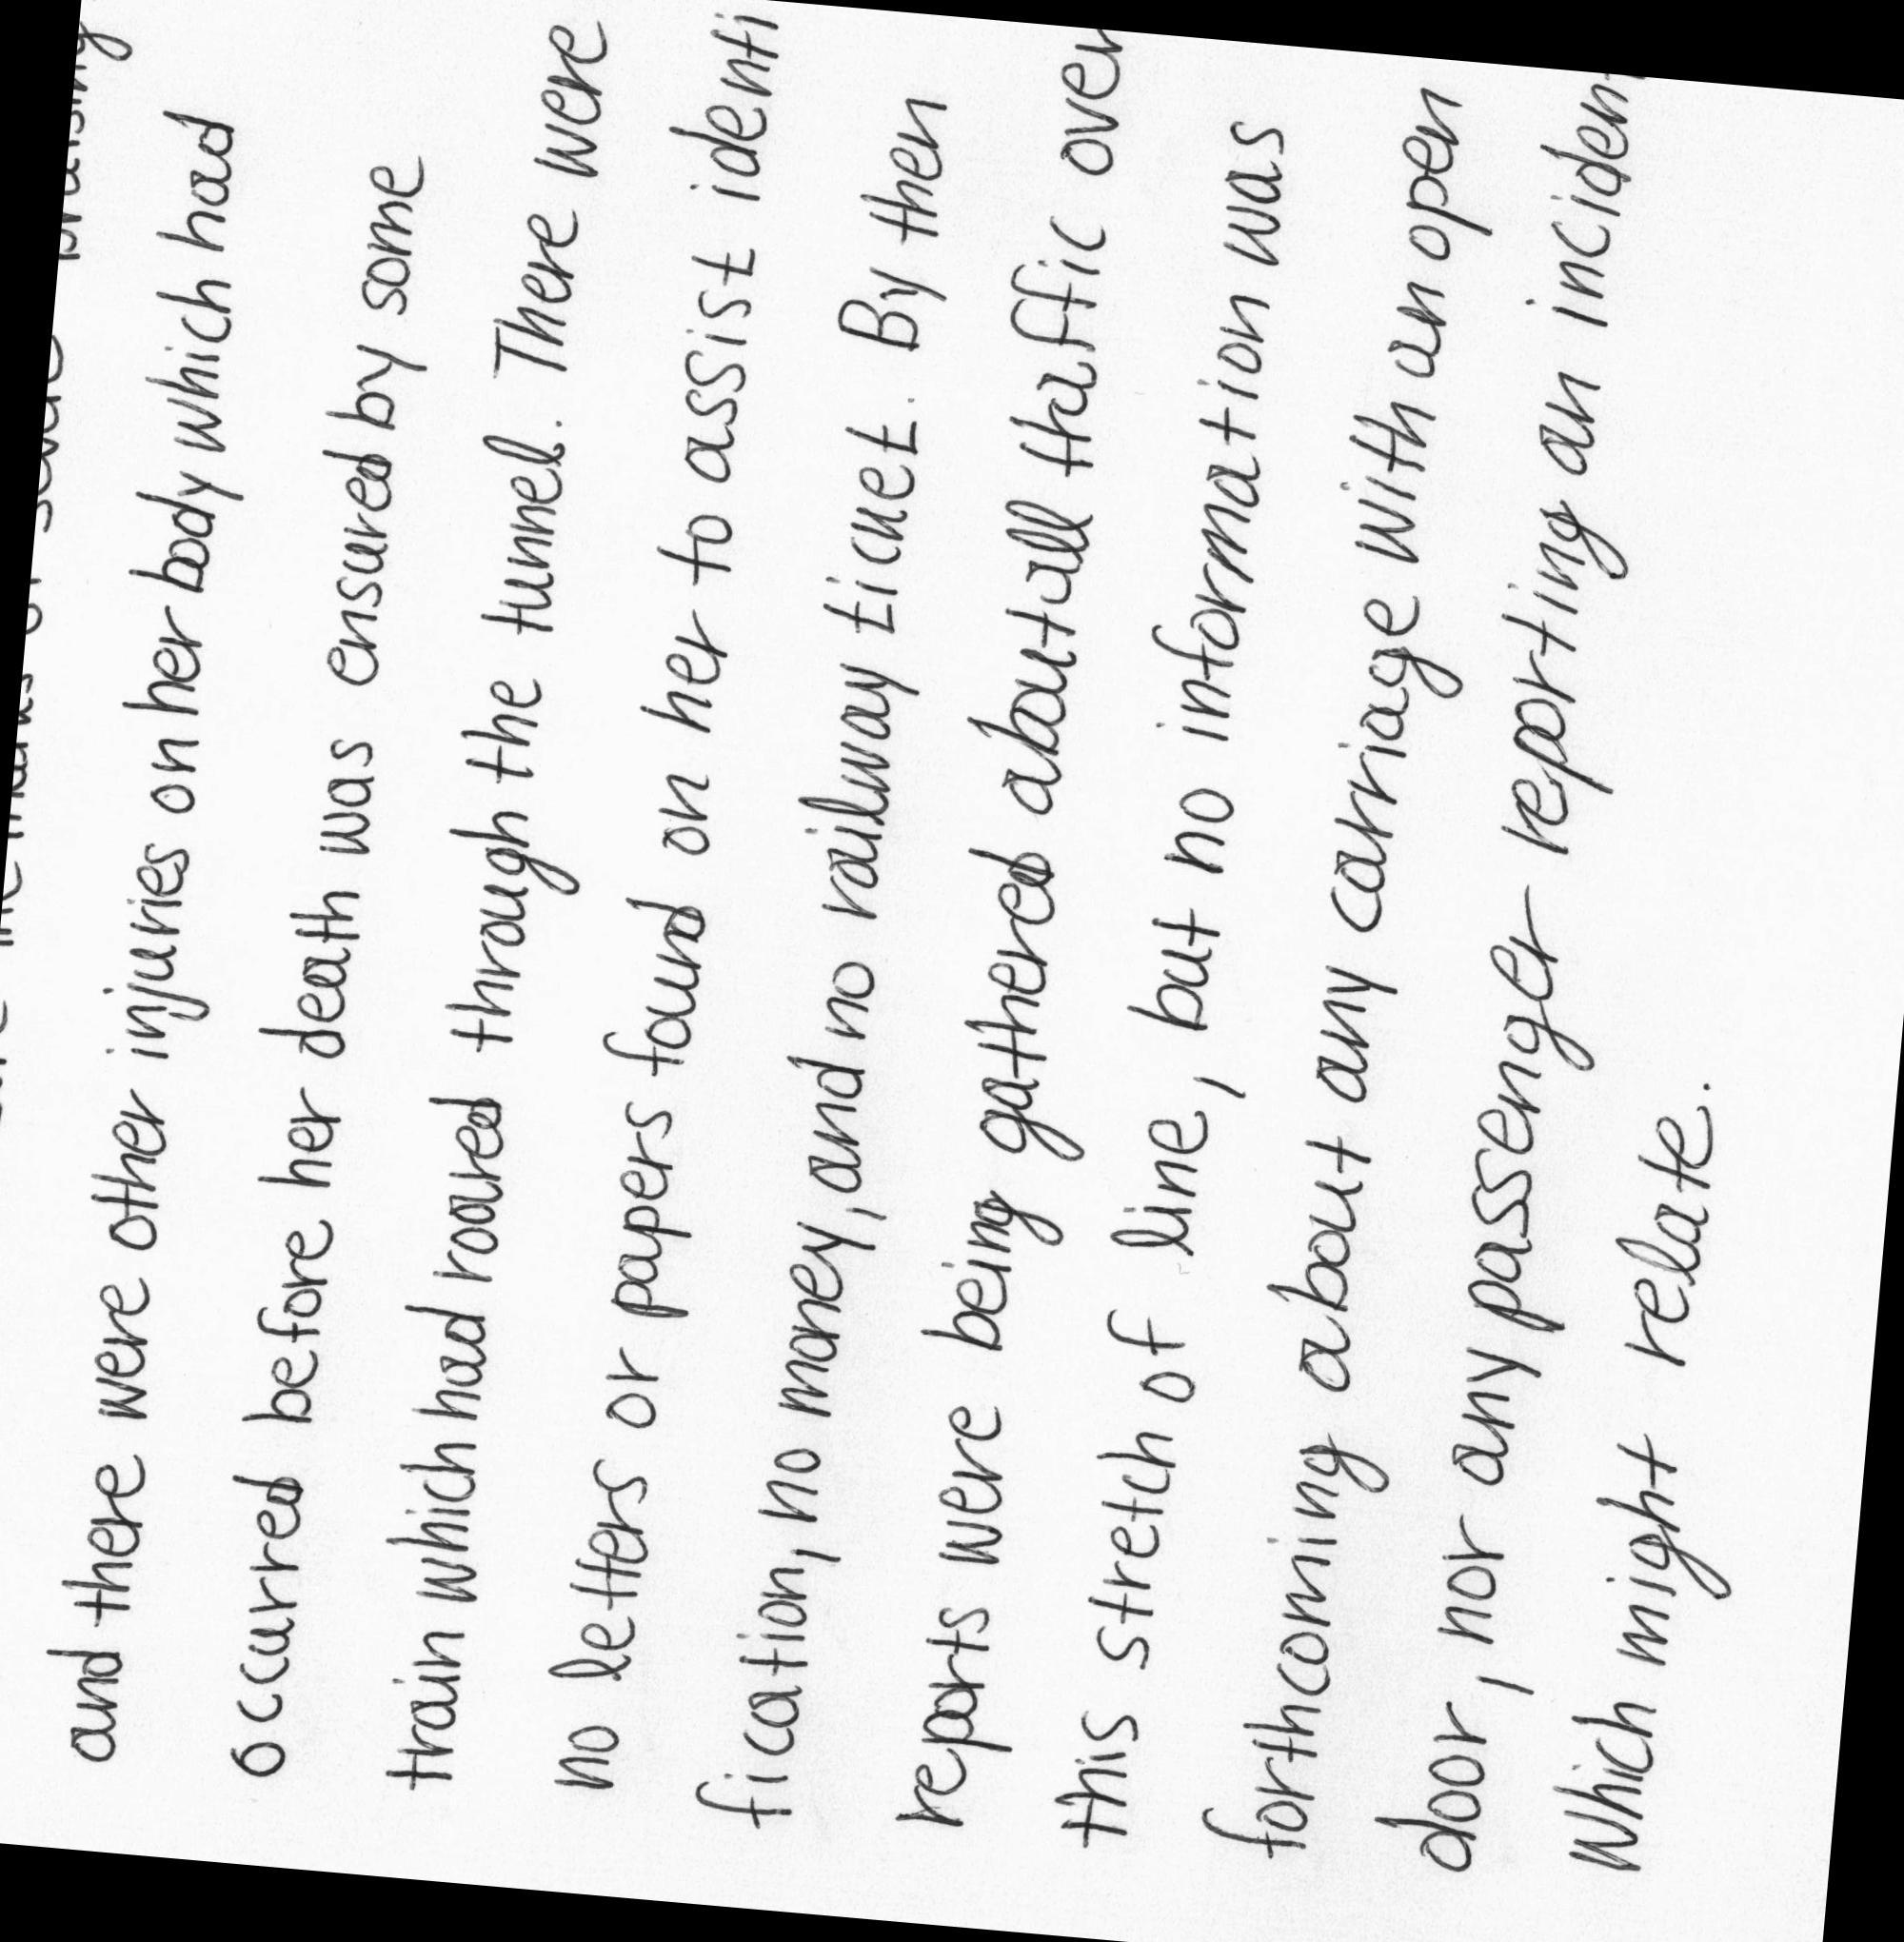 marks of severe bruising
and there were other injuries on her body which had
occurred before her death was ensured by some
train which had roared through the tunnel. There were
no letters or papers found on her to assist identi
fication, no money, and no railway ticket. By then
reports were being gathered about all traffic over
this stretch of line, but no information was
forthcoming about any carriage with an open
door, nor any passenger reporting an incident
which might relate.